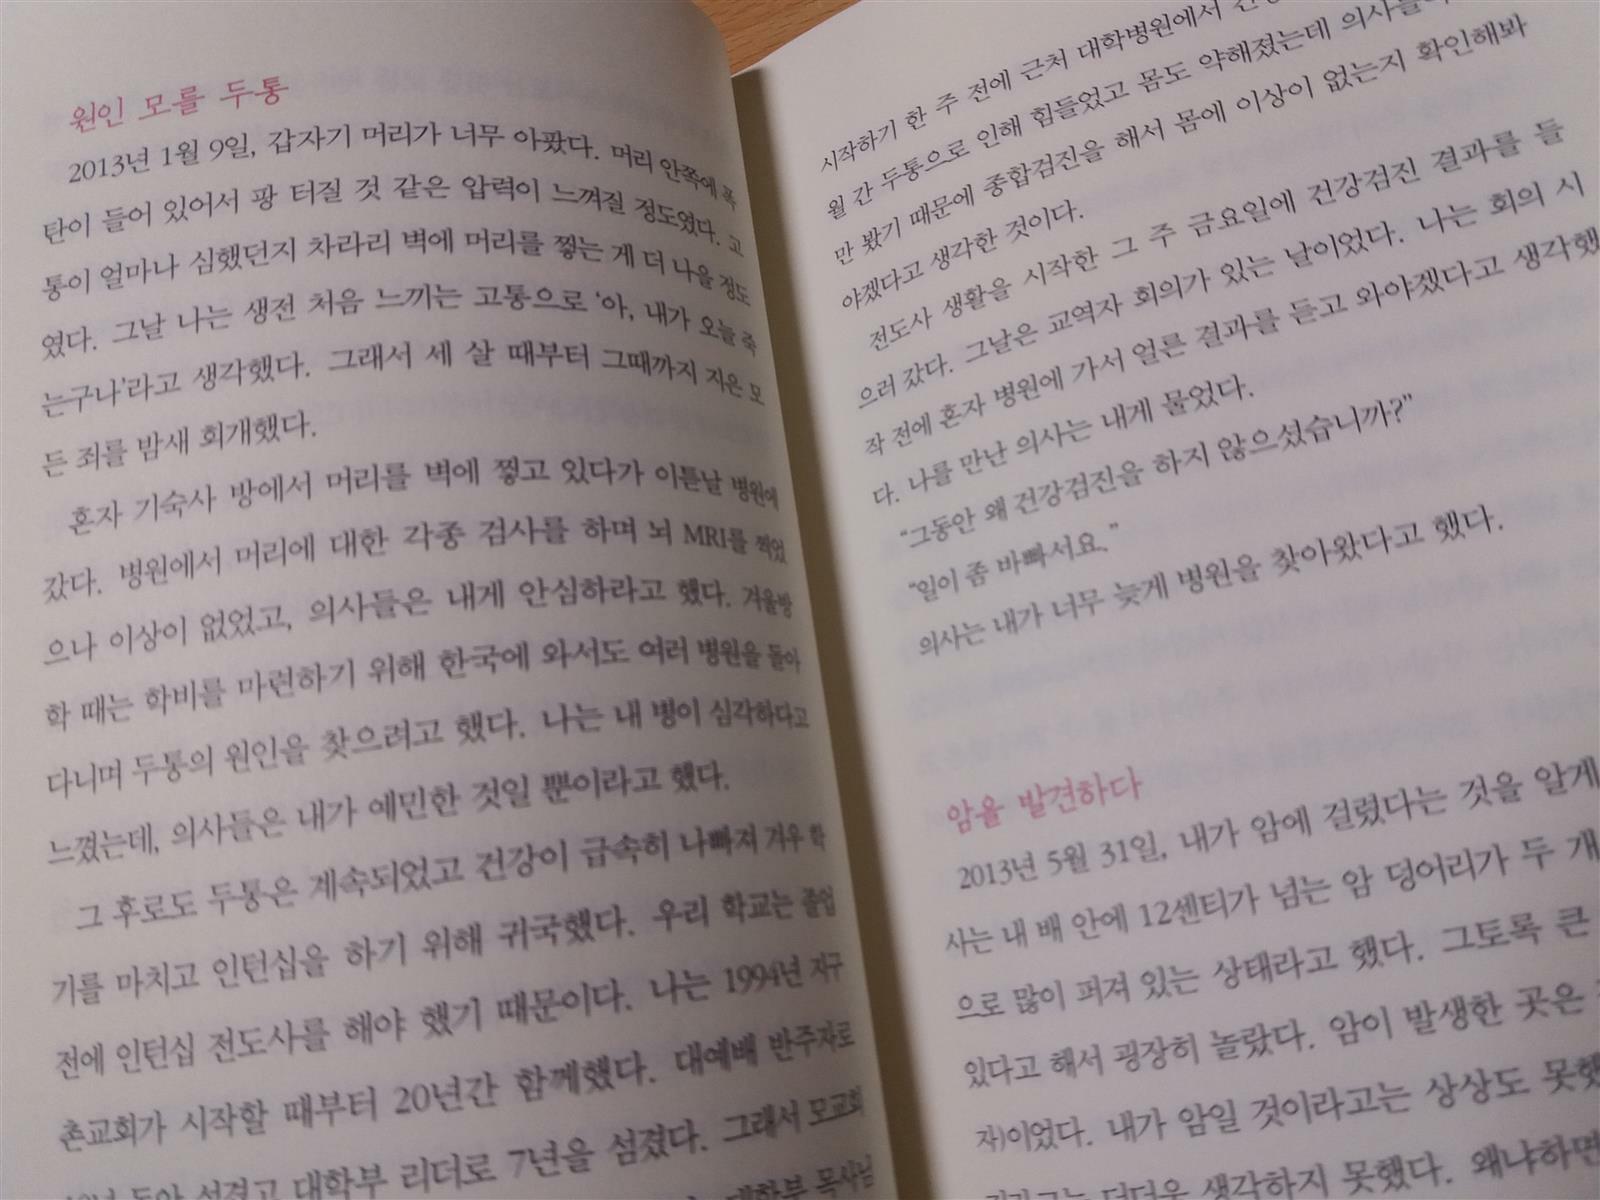 원인 모를 두통
2013년 1월 9일, 갑자기 머리가 너무 아팠다. 머리 안쪽에 폭
탄이 들어 있어서 팡 터질 것 같은 압력이 느껴질 정도였다. 고
통이 얼마나 심했던지 차라리 벽에 머리를 찧는 게 더 나을 정도
였다. 그날 나는 생전 처음 느끼는 고통으로 ‘아, 내가 오늘 죽
는구나’라고 생각했다. 그래서 세 살 때부터 그때까지 지은 모
든 죄를 밤새 회개했다.
혼자 기숙사 방에서 머리를 벽에 찧고 있다가 이튿날 병원에
갔다. 병원에서 머리에 대한 각종 검사를 하며 뇌 MRI를 찍었
으나 이상이 없었고, 의사들은 내게 안심하라고 했다. 겨울방
학 때는 학비를 마련하기 위해 한국에 와서도 여러 병원을 돌아
다니며 두통의 원인을 찾으려고 했다. 나는 내 병이 심각하다고
느꼈는데, 의사들은 내가 예민한 것일 뿐이라고 했다.
그 후로도 두통은 계속되었고 건강이 급속히 나빠져 겨우 학
기를 마치고 인턴십을 하기 위해 귀국했다. 우리 학교는 졸업
전에 인턴십 전도사를 해야 했기 때문이다. 나는 1994년 지구
촌교회가 시작할 때부터 20년간 함께했다. 대예배 반주자로
동안 섬겼고 대학부 리더로 7년을 섬겼다. 그래서 모교회
대학부 목사님
시작하기 한 주 전에 근처 대학병원에서
월 간 두통으로 인해 힘들었고 몸도 약해졌는데 의사들이
만 봤기 때문에 종합검진을 해서 몸에 이상이 없는지 확인해봐
야겠다고 생각한 것이다.
전도사 생활을 시작한 그 주 금요일에 건강검진 결과를 들
으러 갔다. 그날은 교역자 회의가 있는 날이었다. 나는 회의 시
작 전에 혼자 병원에 가서 얼른 결과를 듣고 와야겠다고 생각했
다. 나를 만난 의사는 내게 물었다.
“그동안 왜 건강검진을 하지 않으셨습니까?”
“일이 좀 바빠서요.”
의사는 내가 너무 늦게 병원을 찾아왔다고 했다.
암을 발견하다
2013년 5월 31일, 내가 암에 걸렸다는 것을 알게
사는 내 배 안에 12센티가 넘는 암 덩어리가 두 개
으로 많이 퍼져 있는 상태라고 했다. 그토록 큰
있다고 해서 굉장히 놀랐다. 암이 발생한 곳은
자)이었다. 내가 암일 것이라고는 상상도 못했
더더욱 생각하지 못했다. 왜냐하면